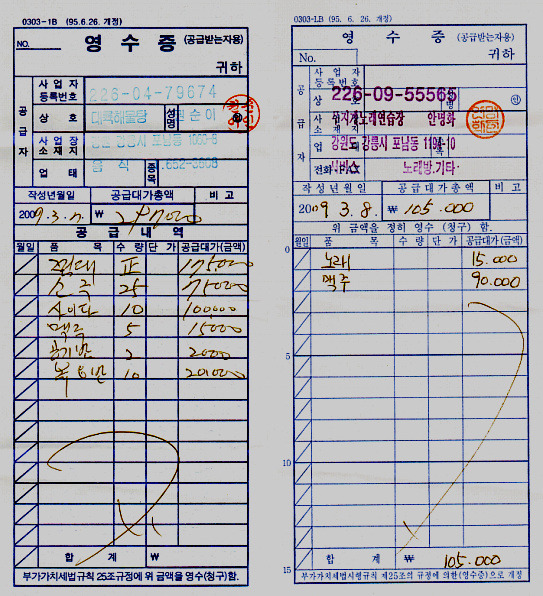 0303-1B (95.6.26. 개정)
NO.
영 수 증 (공급받는자용)
귀하
공급자
사업자등록번호 226-04-79674
상호 대륙해물탕 성명 순이 ㊞
사업장소재지 강릉시 포남동
업태 음식 종목
작성년월일 공급대가총액 비고
2009. 3. 7. ₩
공 급 내 역
월일 품 목 수량 단가 공급대가(금액)
正 175000
소주 25 75000
사이다 10
맥주 5 15000
공기밥 2 2000
볶음밥 10
합 계 ₩
부가가치세법규칙 25조규정에 위 금액을 영수(청구)함.
0303-LB (95. 6. 26. 개정)
영 수 증 (공급받는자용)
No.
귀하
공급자
사업자등록번호 226-09-55565
상호 노래연습장 안명화 ㊞
사업장소재지 강원도 강릉시 포남동 1194-10
업태 서비스 노래방.기타
전화·FAX
작성년월일 공급대가총액 비고
2009 3. 8. ₩ 105.000
위 금액을 정히 영수 (청구) 함.
월일 품 목 수량 단가 공급대가(금액)
0
노래 15.000
맥주 90.000
5
10
합 계 ₩ 105.000
15
부가가치세법시행규칙 제25조의 규정에 의한(영수증)으로 개정